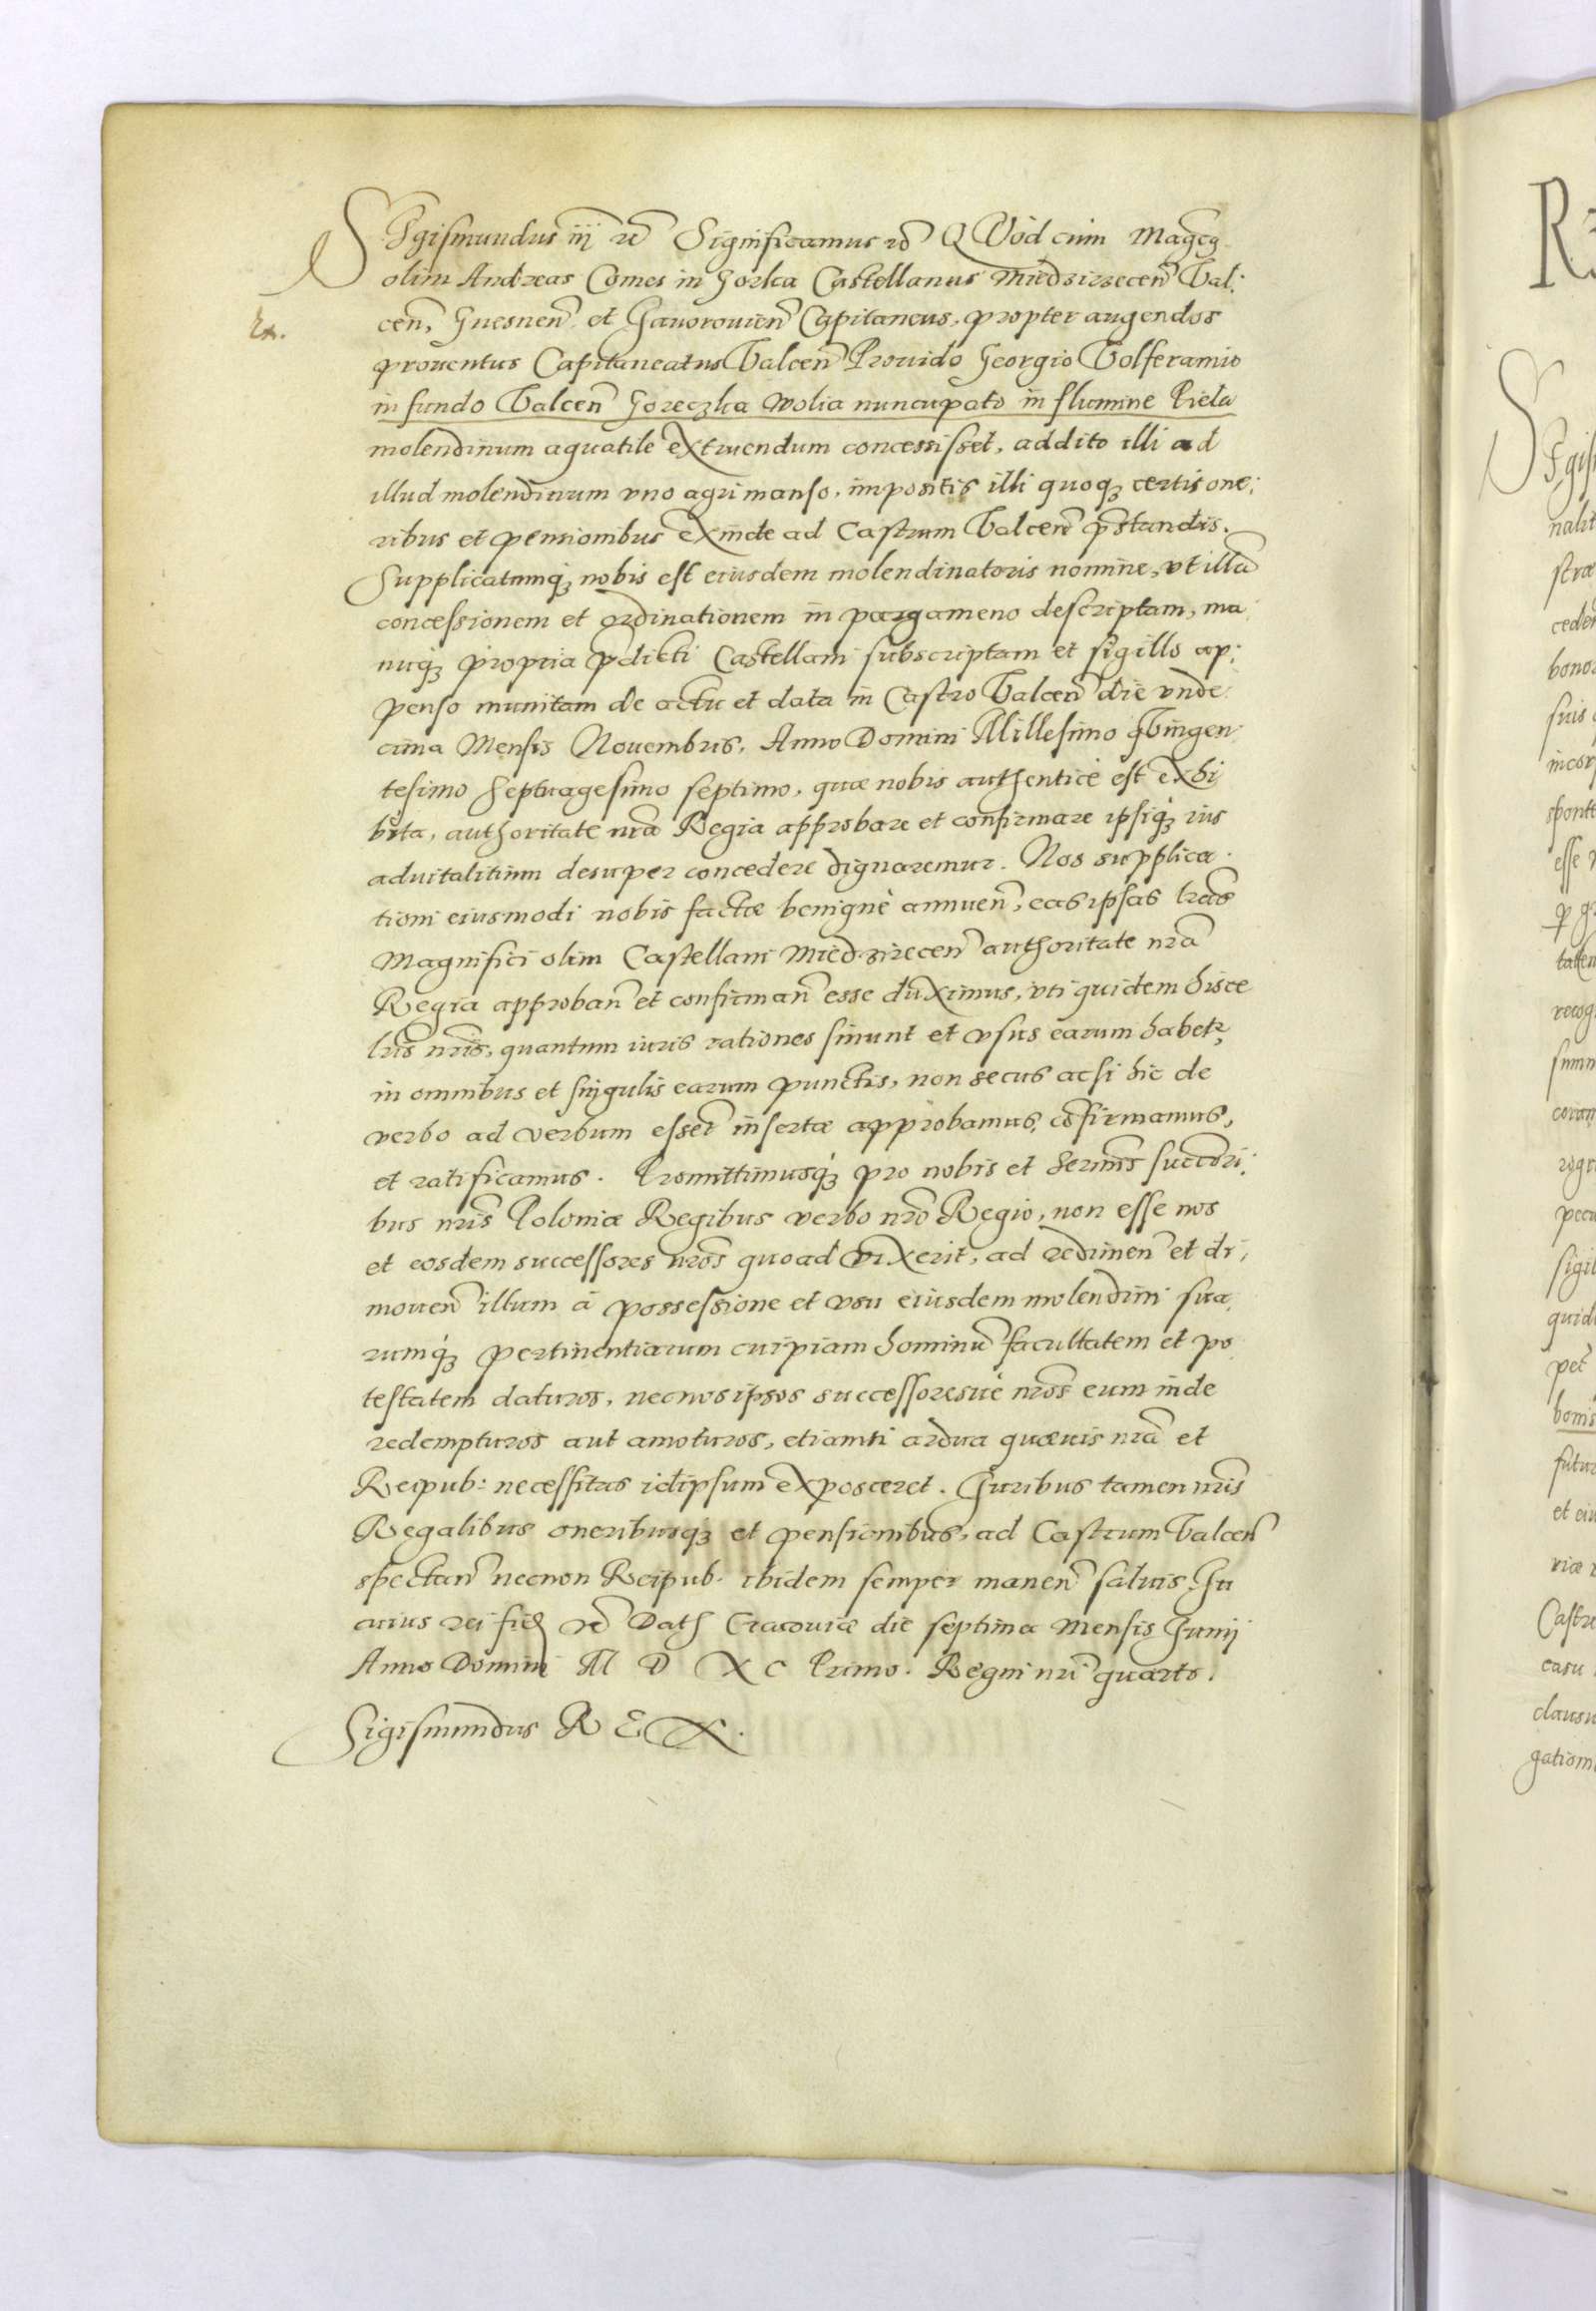 SIgismundus iij rc̃ Significamus rc̃ QVòd cùm Magcg
olim Andreas Comes in Gorka Castellanus Miedzirzecen̄ Val:
Ex. cen̄, Gnesnen̄ et Gavorovien̄ Capitaneus, propter augendos
proventus Capitaneatus Valcen̄ Provido Georgio Volferamio
in fundo Valcen̄ Goreczka Wolia nuncupato in flumine Piela
molendinum aquatile extruendum concessisset, addito illi ad
illud molendinum uno agri manso, impositis illi quoq; certis one:
ribus et pensionibus exinde ad Castrum Valcen̄ p̄standis.
Supplicatumq; nobis est eiusdem molendinatoris nomine, vt illā
concessionem et ordinationem in pargameno descriptam, ma
nuq; propria p̄dicti Castellani subscriptam et sigillo ap:
penso munitam de actu et data in Castro Valcen̄ die vnde
cima Mensis Novembris, Anno Domini Millesimo qVingen
tesimo Septuagesimo septimo, quæ nobis authenticè est exhi
bita, authoritate nrā Regia approbare et confirmare ipsiq; ius
advitalitium desuper concedere dignaremur. Nos supplica
tioni eiusmodi nobis factæ benignè annuen̄, eas ipsas lrās
Magnifici olim Castellani Miedzirecen̄ authoritate nrā
Regia approban̄ et confirman̄ esse duximus, vti quidem hisce
lrīs nrīs, quantum iuris rationes sinunt et vsus earum habetr,
in omnibus et singulis earum punctis, non secus acsi hic de
verbo ad verbum essen̄t insertæ approbamus, cōfirmamus,
et ratificamus. Promittimusq; pro nobis et Sermīs succōri:
bus nrīs Poloniæ Regibus verbo nrō Regio, non esse nos
et eosdem successores nrōs quoad vixerit, ad redimen̄ et di:
moven̄ illum à possessione et vsu eiusdem molendini sua
rumq; pertinentiarum cuipiam hominū facultatem et po
testatem daturos, nec nos ipsos successoresvè nrōs eum inde
redempturos aut amoturos, etiamsi ardua quævis nrā et
Reipub: necessitas idipsum exposceret. Iuribus tamen nrīs
Regalibus oneribusq; et pensionibus, ad Castrum Valcen̄
spectan̄ necnon Reipub. ibidem semper manen̄ salvis, In
cuius rei fid rc̃ Dath Cracoviæ die septima Mensis Iunij
Anno Domini M D X C Primo. Regni nrī quarto.
Sigismundus R E X.